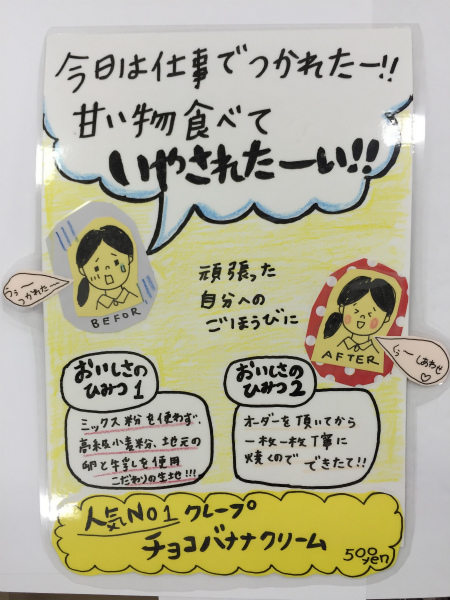 今日は仕事でつかれたー!!
甘い物食べて
いやされたーい!!
うぅー
つかれたー
BEFOR
頑張った
自分への
ごほうびに
AFTER
しあわせ♡
おいしさの
ひみつ1
ミックス粉を使わず、
高級小麦粉、地元の
卵と牛乳を使用
こだわりの生地!!!
おいしさの
ひみつ2
オーダーを頂いてから
一枚一枚丁寧に
焼くので
できたて!!
人気NO1 クレープ
チョコバナナクリーム
500yen